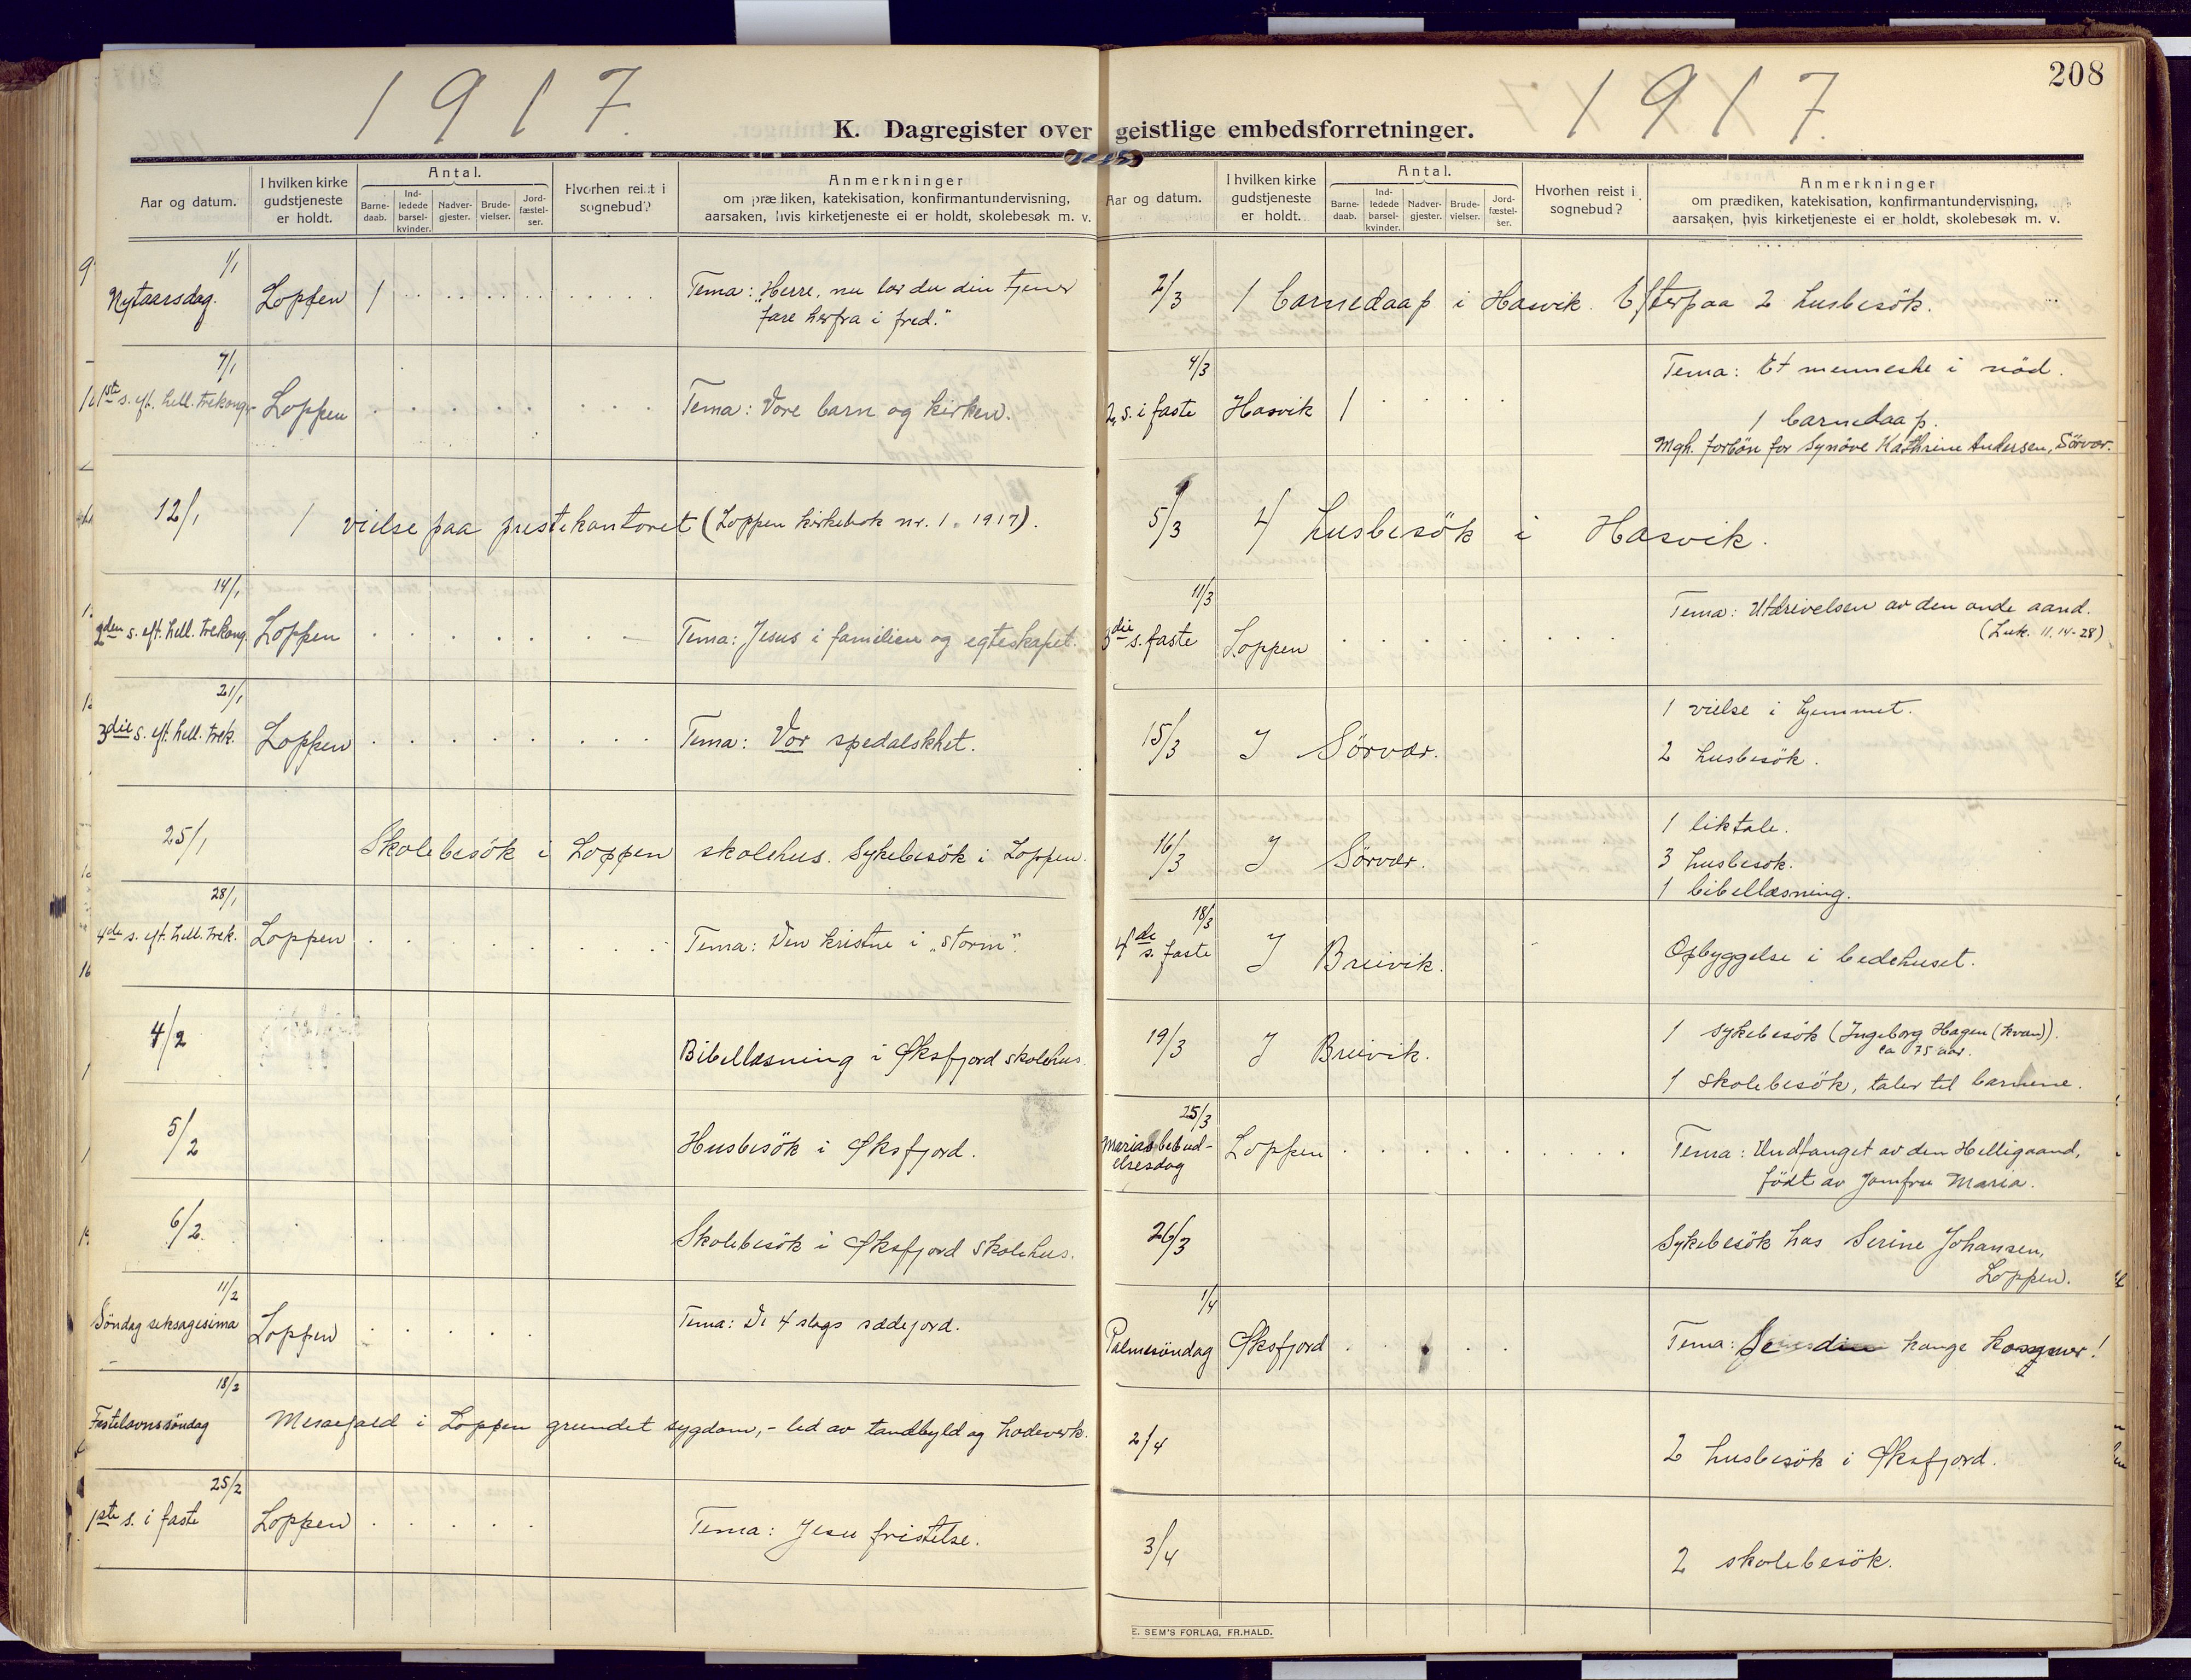 1917.
1917.
208
K. Dagregister over geistlige embedsforretninger.
Aar og datum.
I hvilken kirke gudstjeneste er holdt.
Antal.
Barne-daab.
Ind-ledede barsel-kvinder.
Nadver-gjester.
Brude-vielser.
Jord-fæstel-ser.
Hvorhen reist i sognebud?
Anmerkninger
om prædiken, katekisation, konfirmantundervisning,
aarsaken, hvis kirketjeneste ei er holdt, skolebesøk m. v.
1/1
Nytaarsdag. Loppen 1 Tema: "Herre, nu lar du din tjener
fare herfra i fred."
7/1
1ste s. eft. hell. trekonger Loppen Tema: Vore barn og kirken.
12/1 1 vielse paa prestekontoret (Loppen kirkebok nr. 1. 1917).
14/1
2den s. eft. hell. trekong. Loppen Tema: Jesus i familien og egteskapet.
21/1
3die s. eft. hell. trek. Loppen Tema: Vor spedalskhet.
25/1 Skolebesök i Loppen skolehus. Sykebesök i Loppen.
28/1
4de s. eft. hell. trek. Loppen Tema: Den kristne i „storm".
4/2 Bibellæsning i Øksfjord skolehus.
5/2 Husbesök i Øksfjord.
6/2. Skolebesök i Øksfjord skolehus.
11/2
Söndag seksagesima Loppen Tema: De 4 slags sædejord.
18/2
Fastelavnssöndag Messefald i Loppen grundet sygdom, - led av tandbyld og hodeverk.
25/2
1ste s. i faste Loppen Tema: Jesu fristelse.
Aar og datum.
I hvilken kirke gudstjeneste er holdt.
Antal.
Barne-daab.
Ind-ledede barsel-kvinder.
Nadver-gjester.
Brude-vielser.
Jord-fæstel-ser.
Hvorhen reist i sognebud?
Anmerkninger
om prædiken, katekisation, konfirmantundervisning,
aarsaken, hvis kirketjeneste ei er holdt, skolebesøk m. v.
2/3 1 barnedaap i Hasvik. Efterpaa 2 husbesök.
4/3 Tema: Et menneske i nöd.
2. s. i faste Hasvik 1
1 barnedaap.
Mgh. forbön for Synöve Kathrine Andersen, Sörvær.
5/3 4 husbesök i Hasvik.
11/3 Tema: Utdrivelsen av den onde aand.
3die s. faste Loppen (Luk. 11, 14-28)
15/3 I Sörvær. 1 vielse i hjemmet.
2 husbesök.
16/3 I Sörvær. 1 liktale.
3 husbesök.
1 bibellæsning.
18/3
4de s. faste I Breivik. Opbyggelse i bedehuset.
19/3 I Breivik. 1 sykebesök (Ingeborg Hagen (kvæn)).
ca 75 aar.
1 skolebesök, taler til barnene.
25/3
Mariæ bebud-
elsesdag Loppen Tema: Undfanget av den Helligaand,
födt av Jomfru Maria.
26/3 Sykebesök hos Serine Johansen,
Loppen.
1/4
Palmesöndag Øksfjord Tema: Se din konge kommer!
2/4 2 husbesök i Øksfjord.
3/4 2 skolebesök.
E. SEM'S FORLAG, FR.HALD.